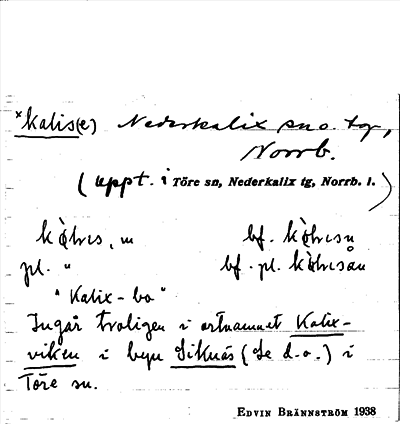 *Kalis(e) Nederkalix sno. tg,
Norrb.
(uppt. i Töre sn, Nederkalix tg, Norrb. l.)
bf.
pl. " bf. pl.
"Kalix-bo"
Ingår troligen i ortnamnet Kalix-
viken i byn Siknäs (Se d.o.) i
Töre sn.
EDVIN BRÄNNSTRÖM 1938